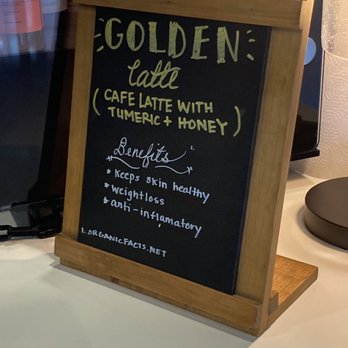 GOLDEN
latte
(CAFE LATTE WITH
TUMERIC + HONEY)
Benefits
• Keeps skin healthy
• weightloss
• anti-inflamatory
1. ORGANICFACTS.NET